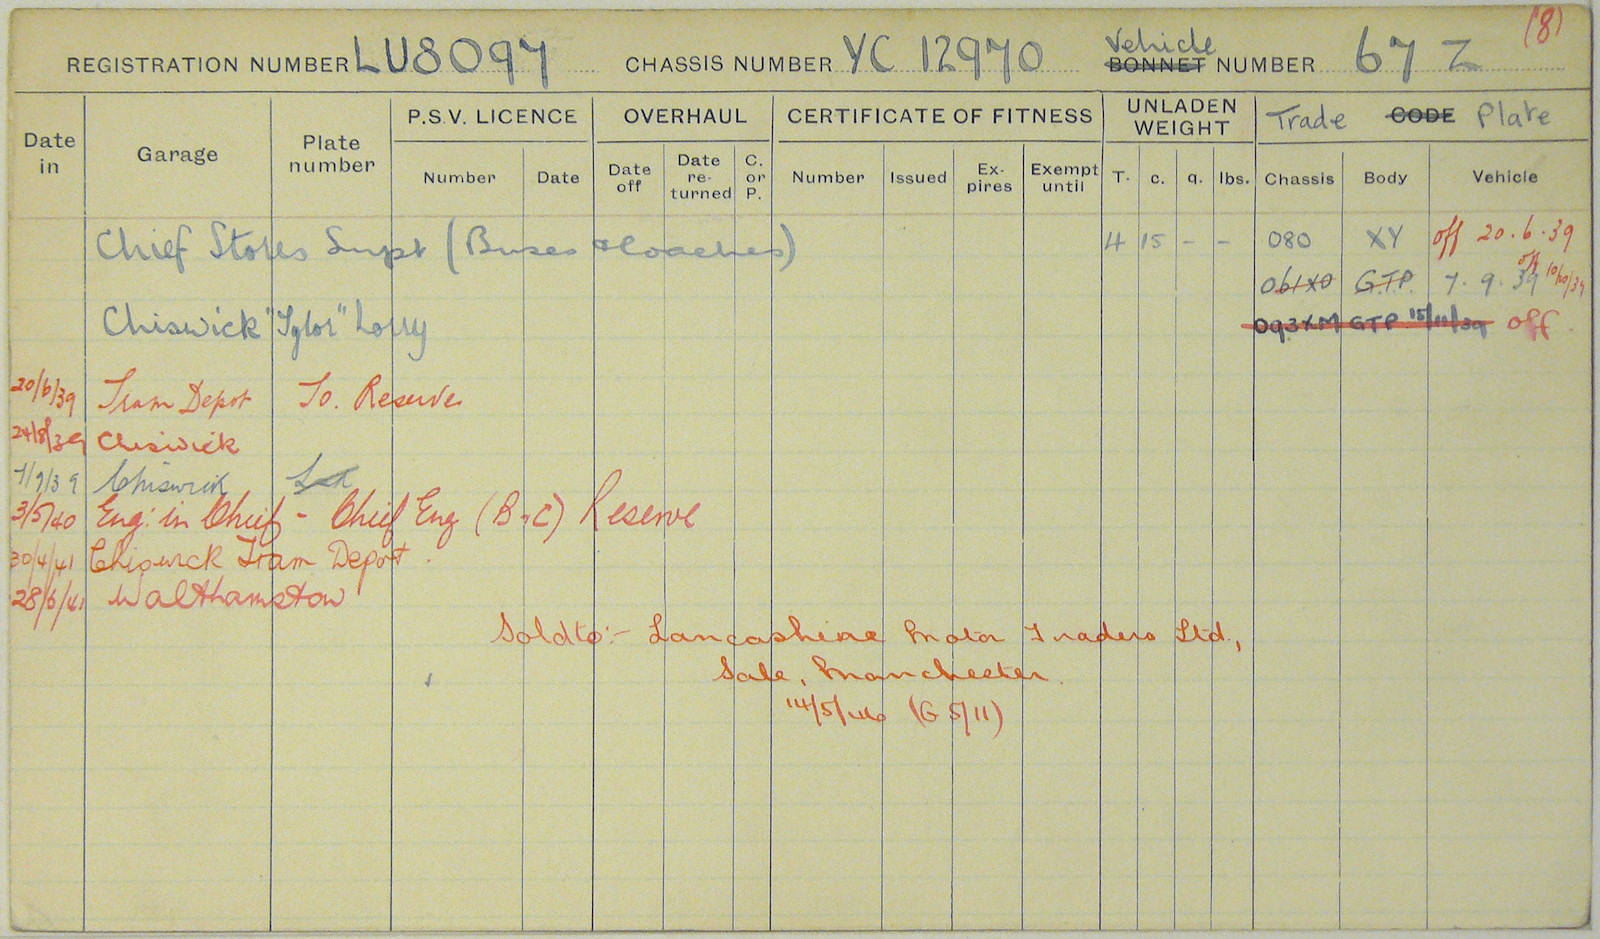 (8)
REGISTRATION NUMBER LU8097 CHASSIS NUMBER YC 12970 Vehicle BONNET NUMBER 67 Z
Date in Garage Plate number P.S.V. LICENCE OVERHAUL CERTIFICATE OF FITNESS UNLADEN WEIGHT Trade CODE Plate
Number Date Date off Date re-turned C. or P. Number Issued Ex-pires Exempt until T. c. q. lbs. Chassis Body Vehicle
Chief Stores Supt (Buses & Coaches) 4 15 - - 080 XY off 20.6.39
GTP 7.9.39 off
Chiswick "Tylor" Lorry 093XM GTP 15/11/39 off.
20/6/39 Tram Depot To. Reserve
24/8/39 Chiswick
7/9/39 Chiswick
3/5/40 Eng: in Chief - Chief Eng (B+C) Reserve
30/4/41 Chiswick Tram Depot.
28/6/41 Walthamstow
Sold to:- Lancashire Motor Traders Ltd.,
Sale, Manchester.
14/5/46 (G 5/11)